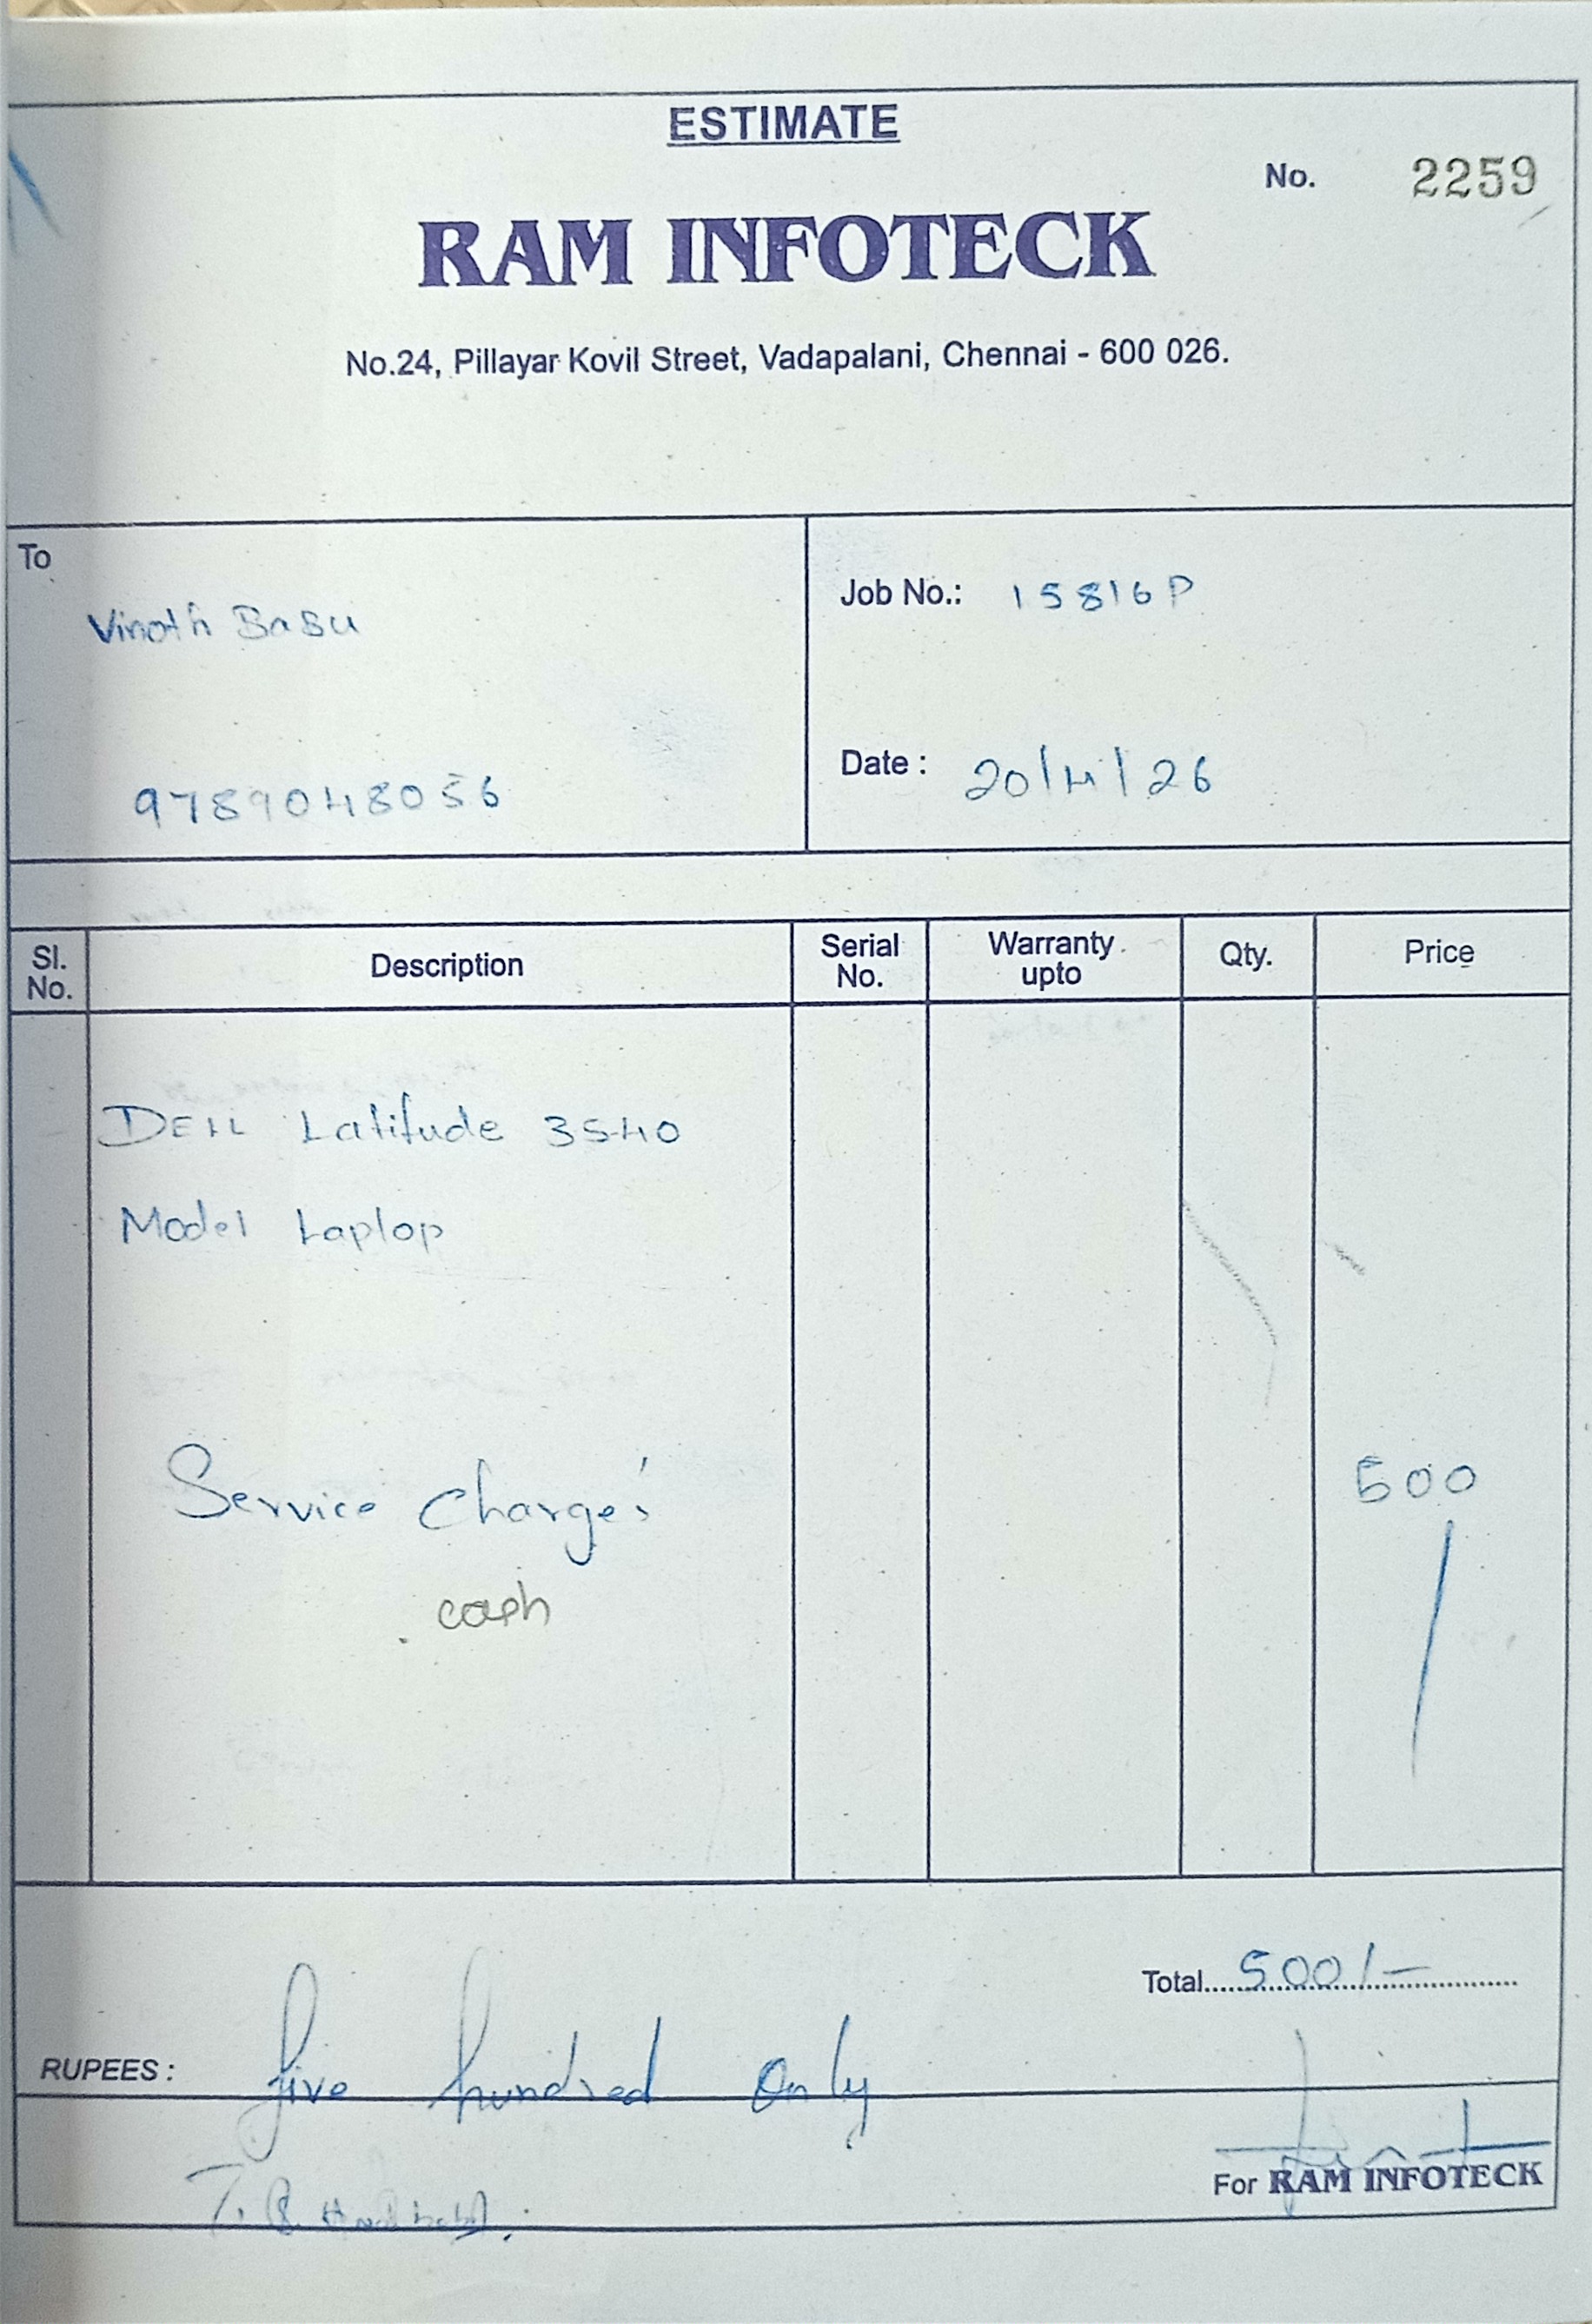 ESTIMATE
No. 2259
RAM INFOTECK
No.24, Pillayar Kovil Street, Vadapalani, Chennai - 600 026.
To
Vinoth Basu
9789048056
Job No.: 15816P
Date : 20/4/26
Sl. No. Description Serial No. Warranty upto Qty. Price
DELL Latitude 3540
Model Laptop
Service Charges 500
cash
Total 500/-
RUPEES : five hundred only
For RAM INFOTECK